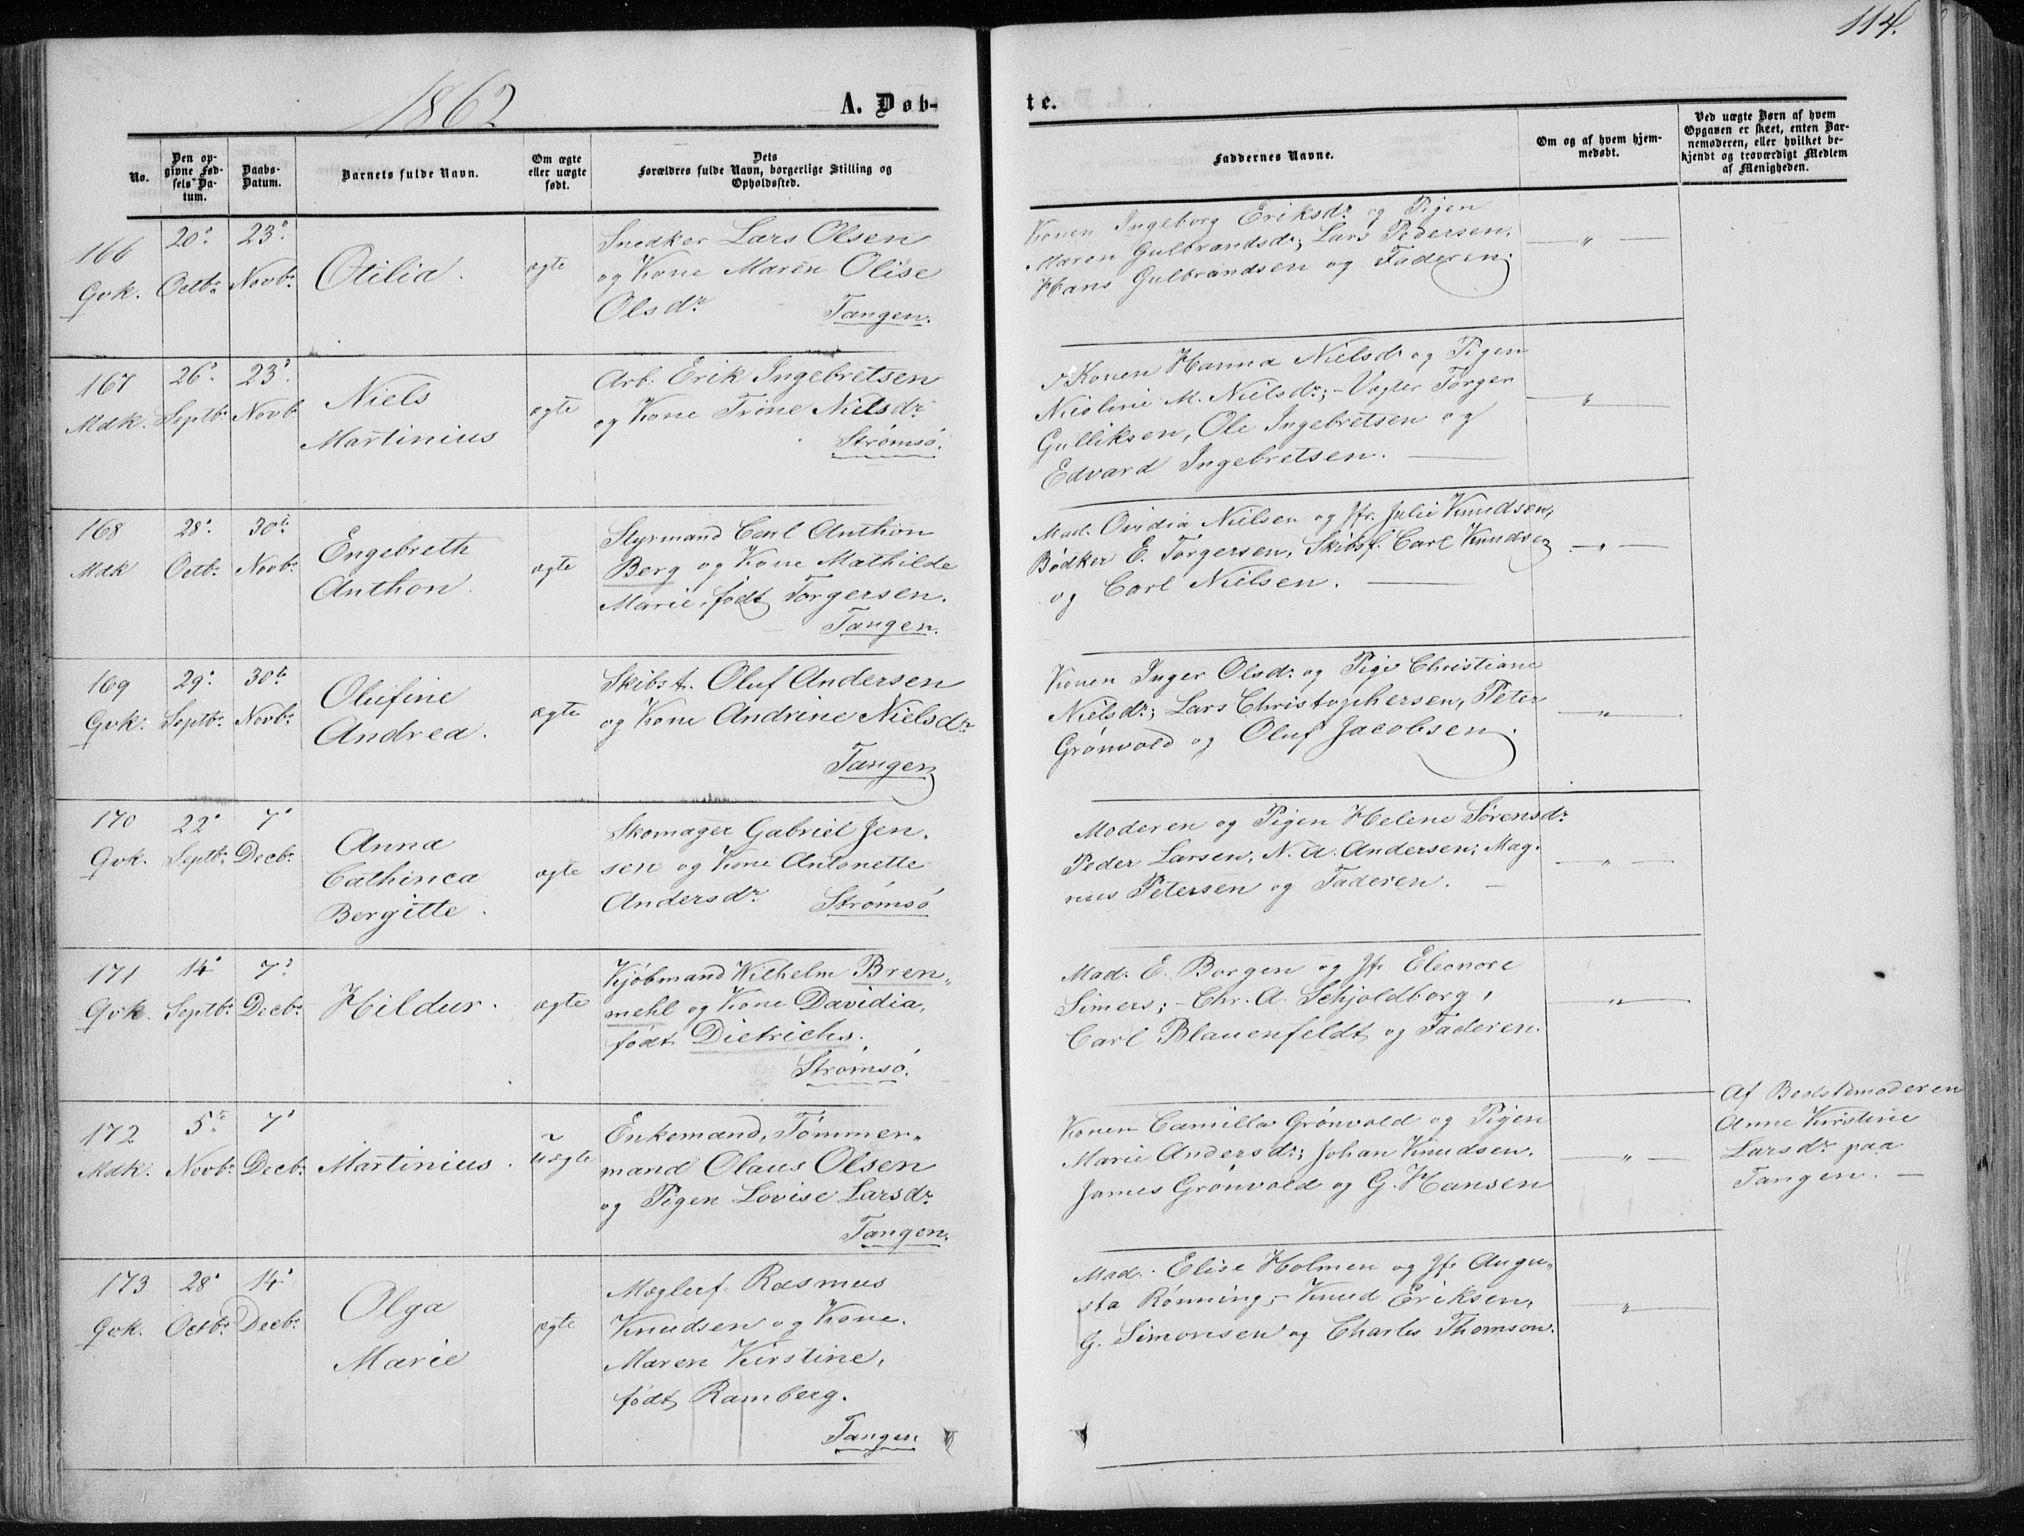 114.
1862
A. Døb-
te.
No.
Den op-
givne Fød-
sels Da-
tum.
Daabs-
Datum.
Barnets fulde Navn.
Om ægte
eller uægte
født.
Dets
Forældres fulde Navn, borgerlige Stilling og
Opholdssted.
Faddernes Navne.
Om og af hvem hjem-
medøbt.
Ved uægte Børn af hvem
Opgaven er skeet, enten Bar-
nemoderen, eller hvilket be-
kjendt og troværdigt Medlem
af Menigheden.
166
Qvk.
20.
Octbr.
23.
Novbr.
Otilia.
ægte
Snedker Lars Olsen
og Kone Maren Olise
Olsdr.
Tangen.
Konen Ingeborg Eriksdr. og Pigen
Maren Gulbrandsdr; Lars Pedersen,
Hans Gulbrandsen og Faderen.
— " —
167
Mdk.
26.
Septbr.
23.
Novbr.
Niels
Martinius
ægte
Arb. Erik Ingebretsen
og Kone Trine Nielsdr.
Strømsø.
Konen Hanna Nielsdr. og Pigen
Nicoline M. Nielsdr; – Vægter Torger
Gulliksen, Ole Ingebretsen og
Edvard Ingebretsen. —
— " —
168
Mdk
28.
Octbr.
30te
Novbr.
Engebreth
Anthon.
ægte
Styrmand Carl Anthon
Berg og Kone Mathilde
Marie, født Torgersen.
Tangen.
Mad. Ovidia Nielsen og Jfr. Julie Knudsen,
Bødker E. Torgersen, Skibsf. Carl Knudsen
og Carl Nielsen. —
— " —
169
Qvk.
29.
Septbr.
30te
Novbr.
Olufine
Andrea.
ægte
Skibst. Oluf Andersen
og Kone Andrine Nielsdr.
Tangen
Konen Inger Olsdr. og Pige Christiane
Nielsdr; Lars Christophersen, Peter
Grønvold og Oluf Jacobsen.
— " —
170
Qvk.
22.
Septbr.
7.
Decbr.
Anna
Cathinca
Bergitte.
ægte
Skomager Gabriel Jen-
sen og Kone Antonette
Andersdr.
Strømsø
Moderen og Pigen Helene Sørensdr.
Peder Larsen, N. A. Andersen; Mag-
nus Petersen og Faderen. —
— " —
171
Qvk.
14.
Septbr.
7.
Decbr.
Hildur.
ægte
Kjøbmand Wilhelm Bren-
mehl og Kone Davidia,
født Dietrichs.
Strømsø.
Mad. E. Borgen og Jfr. Eleonore
Simers; – Chr. A. Schjoldborg,
Carl Blauenfeldt og Faderen.
— " —
172
Mdk.
5te
Novbr.
7.
Decbr.
Martinius.
uægte
Enkemand, Tømmer-
mand Olaus Olsen
og Pigen Lovise Larsdr.
Tangen.
Konen Camilla Grønvold og Pigen
Marie Andersdr; Johan Knudsen,
James Grønvold og G. Hansen
— " —
Af Bedstemoderen
Anne Kirstine
Larsdr. paa
Tangen. —
173
Qvk.
28.
Octbr.
14.
Decbr.
Olga
Marie
ægte
Mæglerf. Rasmus
Knudsen og Kone.
Maren Kirstine,
født Ramberg.
Tangen
Mad. Elise Holmen og Jfr. Augu-
sta Rønning; – Knud Eriksen,
G. Simonsen og Charles Thomson.
— " —